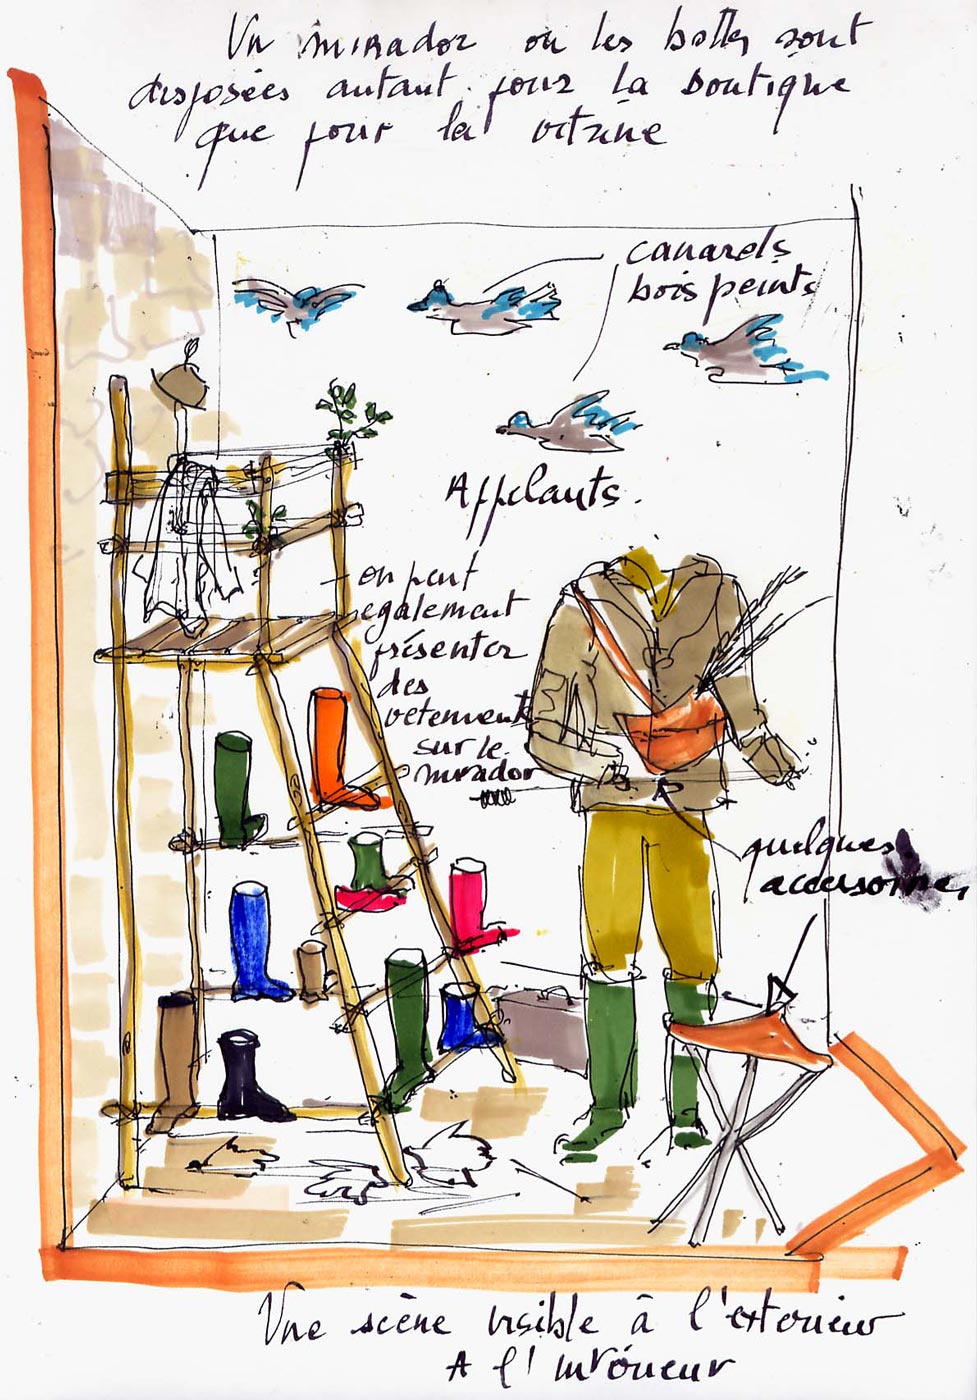 Un mirador ou les bottes sont
disposées autant pour la boutique
que pour la vitrine
canards
bois peints
Appelants.
on peut
egalement
présenter
des
vetements
sur le
mirador
quelques
accessoires
Une scène visible à l'exterieur
A l'intérieur